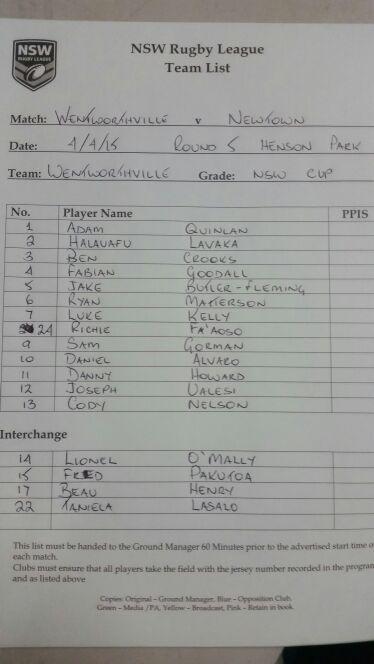 NSW
RUGBY LEAGUE
NSW Rugby League
Team List
Match: WENTWORTHVILLE v NEWTOWN
Date: 4/4/15 ROUND 5 HENSON PARK
Team: WENTWORTHVILLE Grade: NSW CUP
No. Player Name PPIS
1 ADAM QUINLAN
2 HALAUAFU LAVAKA
3 BEN CROOKS
4 FABIAN GOODALL
5 JAKE BUTLER-FLEMING
6 RYAN MATTERSON
7 LUKE KELLY
24 RICHIE FA'AOSO
9 SAM GORMAN
10 DANIEL ALVARO
11 DANNY HOWARD
12 JOSEPH UALESI
13 CODY NELSON
Interchange
14 LIONEL O'MALLY
15 FRED PAKUTOA
17 BEAU HENRY
22 TANIELA LASALO
This list must be handed to the Ground Manager 60 Minutes prior to the advertised start time o
each match.
Clubs must ensure that all players take the field with the jersey number recorded in the program
and as listed above
Copies: Original - Ground Manager, Blue - Opposition Club,
Green - Media /PA, Yellow - Broadcast, Pink - Retain in book.